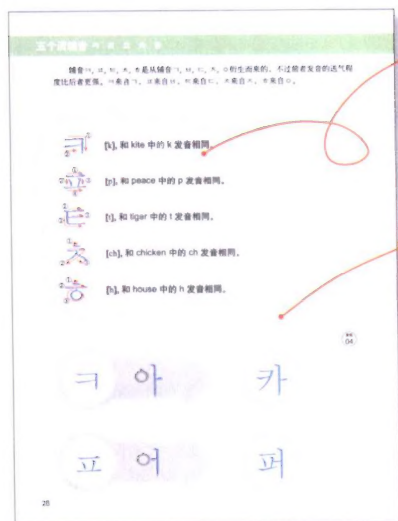 五个送气音 ㅋ ㅍ ㅌ ㅊ ㅎ
辅音ㅋ, ㅍ, ㅌ, ㅊ, ㅎ是从辅音ㄱ, ㅂ, ㄷ, ㅈ, ㅇ衍生而来的, 不过前者发音的送气程
度比后者更强。ㅋ来自ㄱ, ㅍ来自ㅂ, ㅌ来自ㄷ, ㅊ来自ㅈ, ㅎ来自ㅇ。
ㅋ [k], 和 kite 中的 k 发音相同。
ㅍ [p], 和 peace 中的 p 发音相同。
ㅌ [t], 和 tiger 中的 t 发音相同。
ㅊ [ch], 和 chicken 中的 ch 发音相同。
ㅎ [h], 和 house 中的 h 发音相同。
04
ㅋ 아 카
ㅍ 어 퍼
28